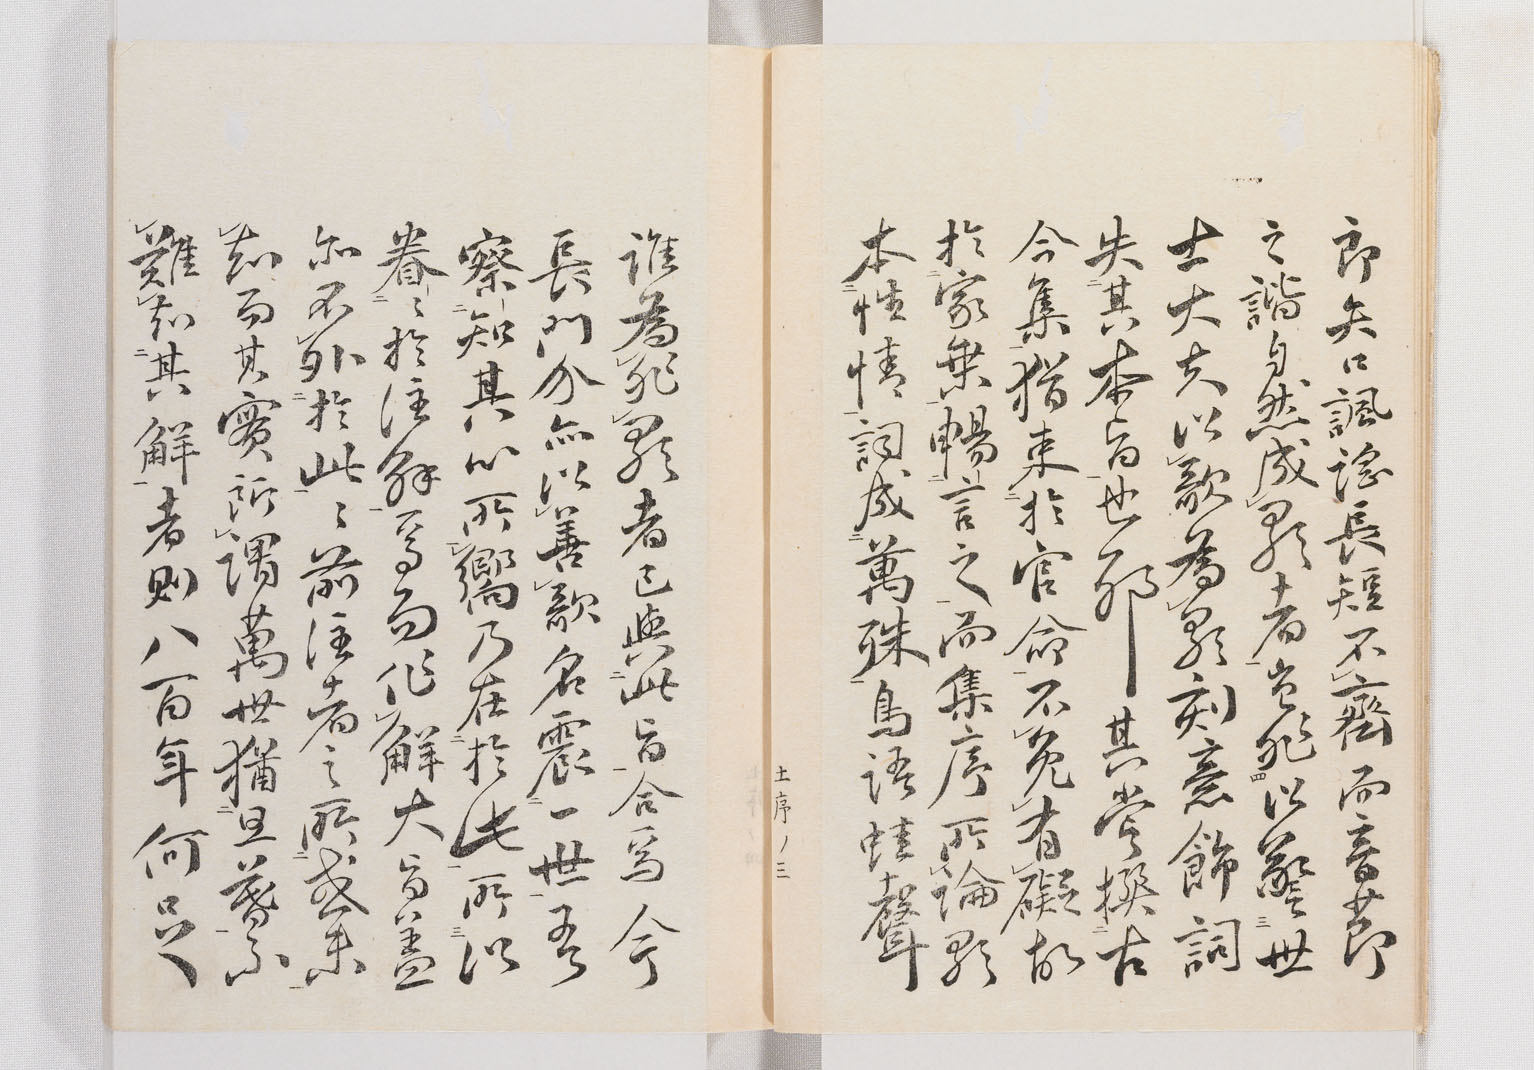 郎矢口諷謠長短不齊而音節
之諧自然成歌者豈非以警世
士大夫以歌為歌刻意飾詞
失其本旨也耶其嘗撰古
今集猶束於官命不免有礙故
於家集暢言之而集序所論歌
本性情詞成萬殊鳥語蛙聲
誰為非歌者已與此旨合焉今
長門介亦以善歌名震一世吾
察知其心所嚮乃在於此所以
眷〻於注解焉而作解大旨蓋
亦不外於此〻前注者之所或未
知而其實所謂萬世猶旦暮不
難知其解者則八百年何足
土序ノ三